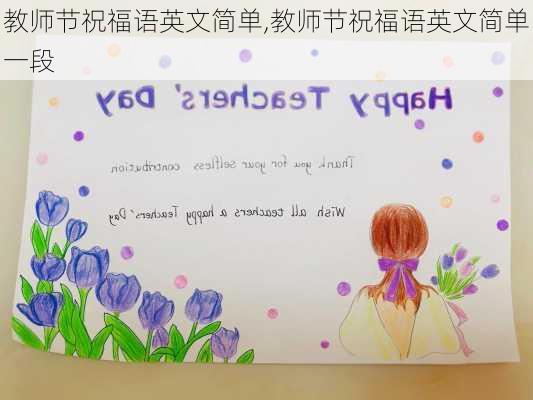 教师节祝福语英文简单,教师节祝福语英文简单
一段
Happy Teachers' Day
Thank you for your selfless contribution
Wish all teachers a happy Teachers' Day